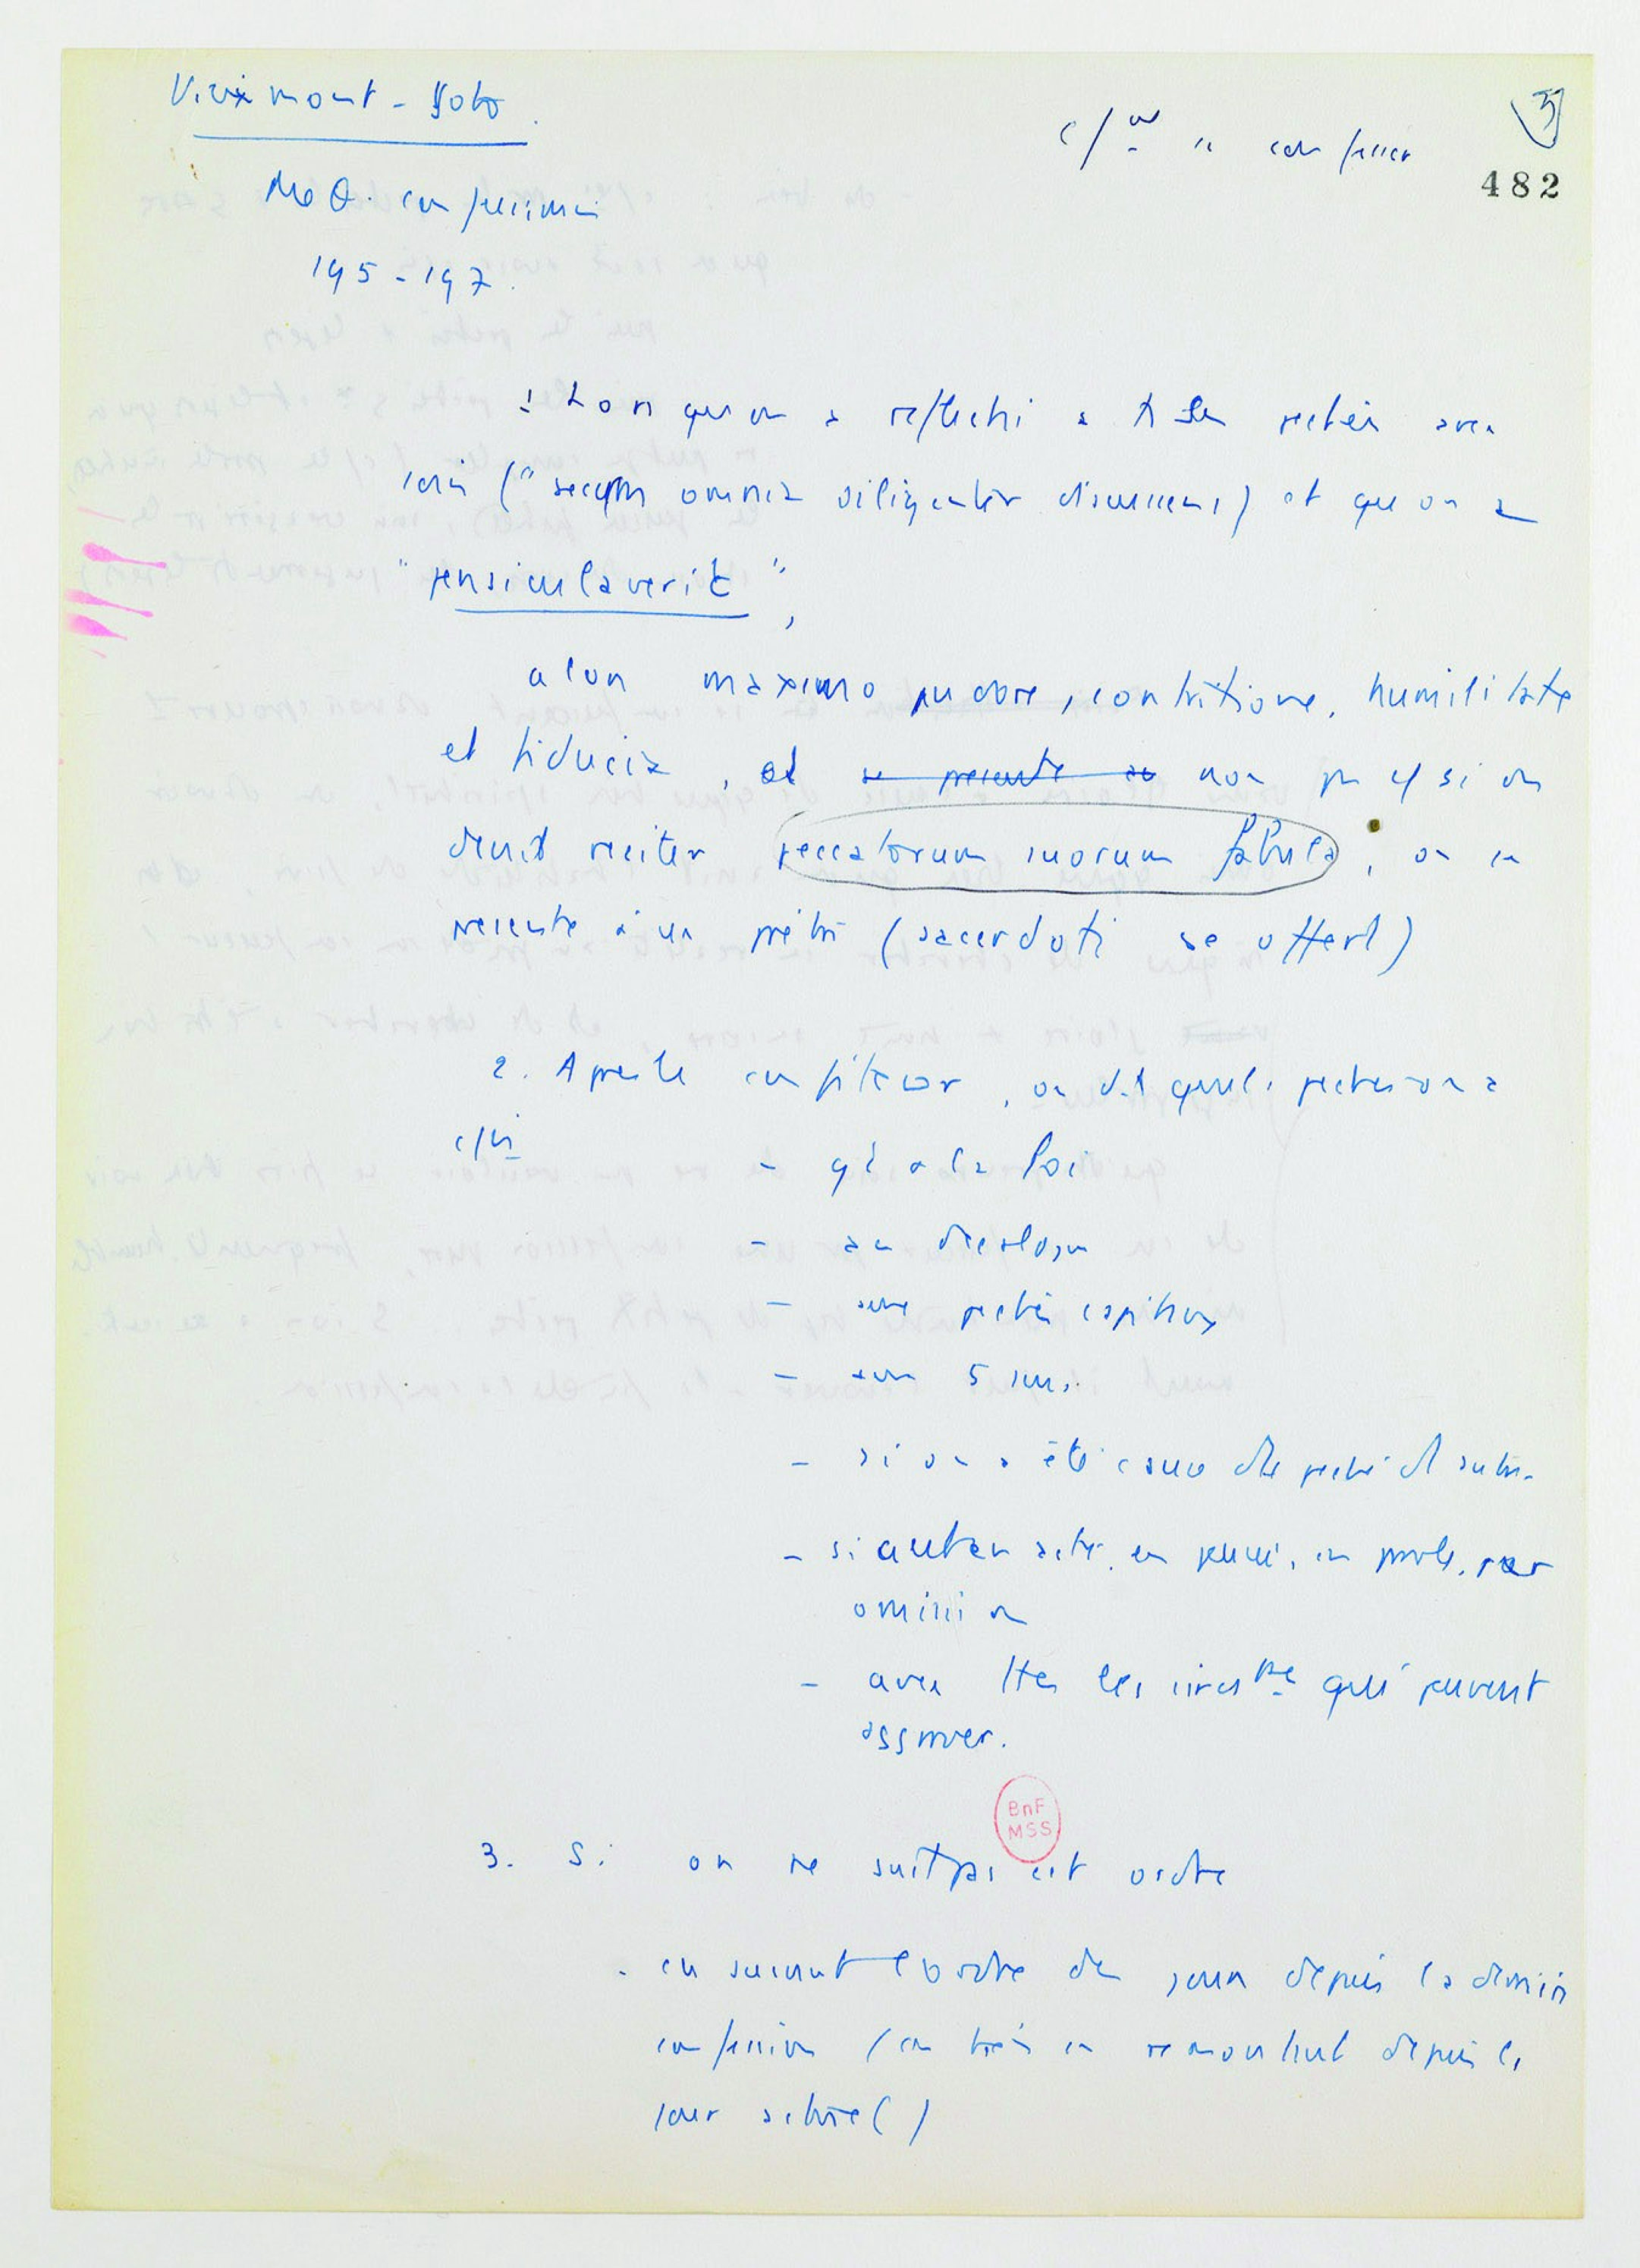 Viexmont - Soto.
c/ est se confesser
5
482
Me O. confessionis
195-197.
1 Lorsqu'on a reflechi a ts ses pechés avec
soin ("secum omnia diligenter discussens) et qu'on a
"pensiculaverit",
alors maximo pudore, contritione, humilitate
et fiducia, et se presente au non pas cf si on
devait reciter peccatorum suorum fabula, on se
presente à un prêtre (sacerdoti se offert)
2. Apres le confiteor, on dit quels pechés on a
- qt a la Loi
- au decalogue
- aux pechés capitaux
- aux 5 sens.
- si on a été cause de peché d'autrui
- si autem acte, en pensée, en parole, par
omission
- avec ttes les circ ces qui peuvent
aggraver.
BnF
MSS
3. Si on ne suit pas cet ordre
- en suivant l'ordre des jours depuis la derniere
confession (ou bien en remontant depuis le
jour actuel)